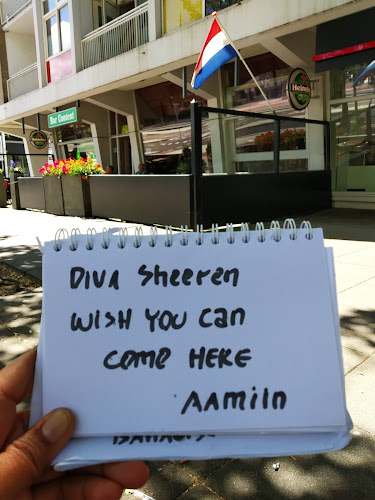 Bar Centent
Heineken
Diva Sheeren
WISH YOU Can
come HERE
AAmiln